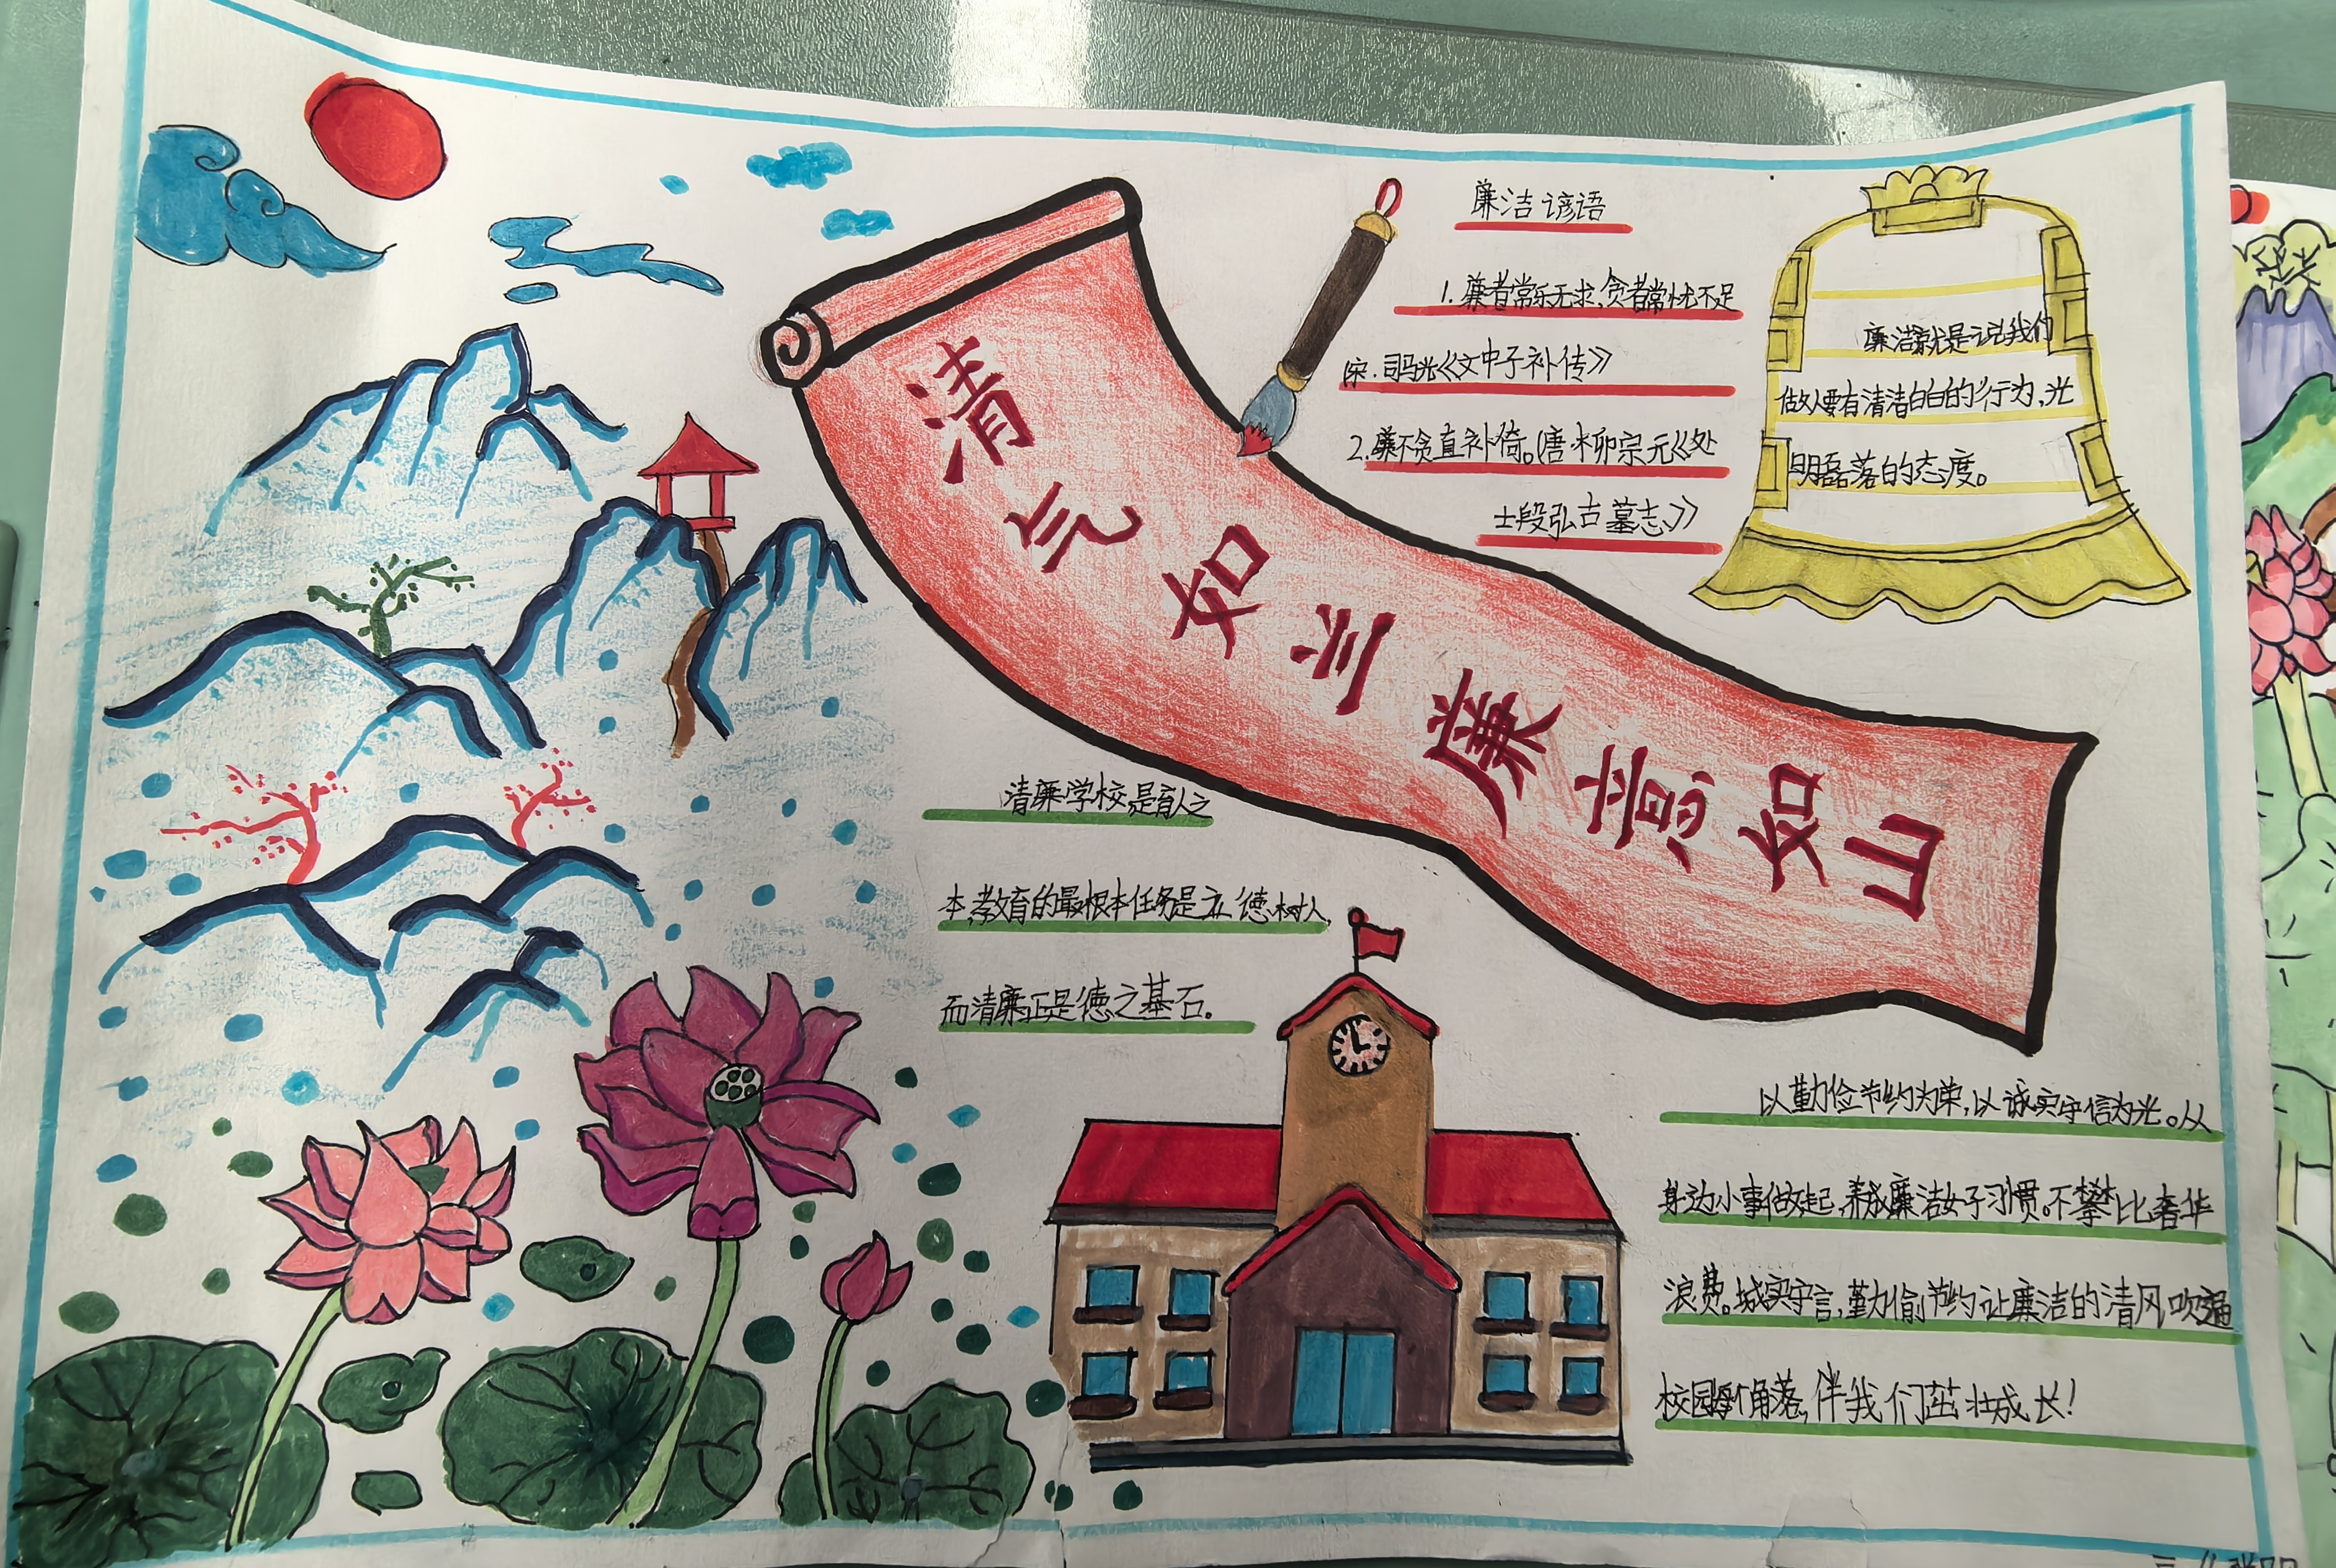 清气如兰廉意如山
廉洁谚语
1.廉者常乐无求,贪者常忧不足
宋.司马光《文中子补传》
2.廉不贪直补倚。(唐·柳宗元《处
士段弘古墓志》
廉洁就是说我们
做人要有清洁白白的行为,光
明磊落的态度。
清廉学校是育人之
本,教育的最根本任务是立德树人,
而清廉正是德之基石。
以勤俭节约为荣,以诚实守信为光。从
身边小事做起,养成廉洁好习惯。不攀比奢华
浪费。城实守言,勤偷节约让廉洁的清风吹遍
校园每个角落,伴我们茁壮成长!